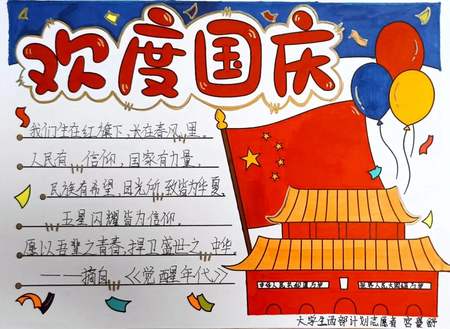 欢度国庆
我们生在红旗下、长在春风里。
人民有信仰，国家有力量，
民族有希望，目光所致皆为华夏
五星闪耀皆为信仰
愿以吾辈之青春，捍卫盛世之中华
——摘自《觉醒年代》
中华人民共和国万岁 世界人民大团结万岁
大学生西部计划志愿者